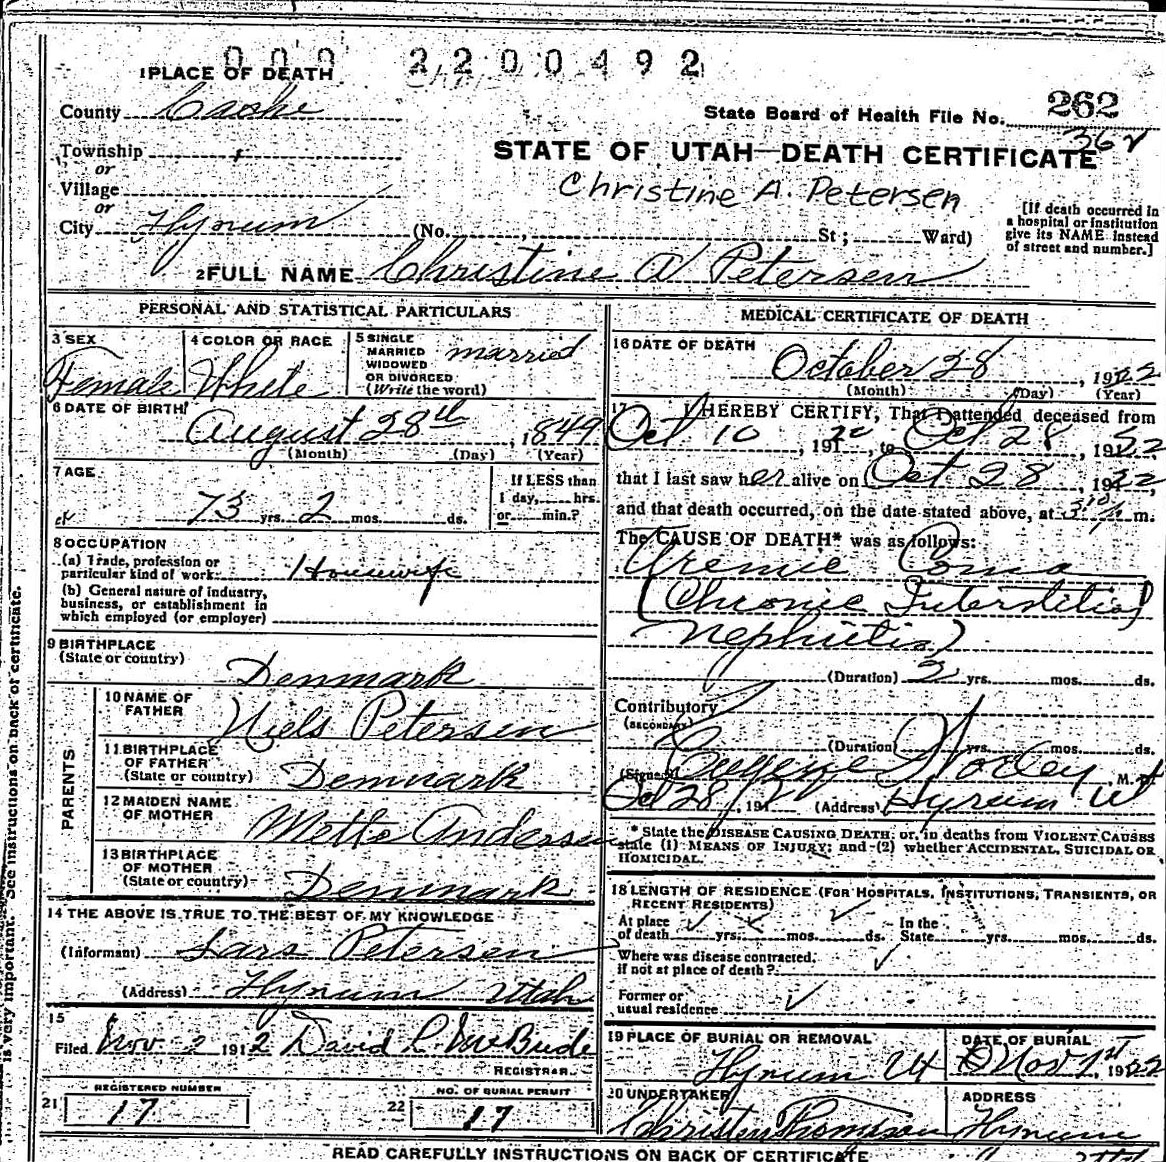 009 2200492
1 PLACE OF DEATH
County Cache
State Board of Health File No. 262
362
Township
or
STATE OF UTAH—DEATH CERTIFICATE
Village
or
Christine A. Petersen
City Hyrum (No. St; Ward)
[If death occurred in
a hospital or institution
give its NAME instead
of street and number.]
2 FULL NAME Christine A Petersen
PERSONAL AND STATISTICAL PARTICULARS
3 SEX
Female
4 COLOR OR RACE
White
5 SINGLE
MARRIED
WIDOWED
OR DIVORCED
(Write the word)
married
6 DATE OF BIRTH
August 28th, 1849
(Month) (Day) (Year)
7 AGE
73 yrs. 2 mos. ds.
If LESS than
1 day, hrs.
or min.?
8 OCCUPATION
(a) Trade, profession or
particular kind of work Housewife
(b) General nature of industry,
business, or establishment in
which employed (or employer)
9 BIRTHPLACE
(State or country)
Denmark
PARENTS
10 NAME OF
FATHER
Niels Petersen
11 BIRTHPLACE
OF FATHER
(State or country)
Denmark
12 MAIDEN NAME
OF MOTHER
Mette Andersen
13 BIRTHPLACE
OF MOTHER
(State or country)
Denmark
14 THE ABOVE IS TRUE TO THE BEST OF MY KNOWLEDGE
(Informant) Lars Petersen
(Address) Hyrum Utah
15
Filed Nov. 2 1912 David L. McBride
REGISTRAR
REGISTERED NUMBER
21 17
NO. OF BURIAL PERMIT
22 17
MEDICAL CERTIFICATE OF DEATH
16 DATE OF DEATH
October 28, 1922
(Month) (Day) (Year)
17 I HEREBY CERTIFY, That I attended deceased from
Oct 10, 1922, to Oct 28, 1922
that I last saw her alive on Oct 28, 1922
and that death occurred, on the date stated above, at m.
The CAUSE OF DEATH* was as follows:
Uremic Coma
(Chronic Interstitial
Nephritis)
(Duration) 2 yrs. mos. ds.
Contributory
(SECONDARY)
(Duration) yrs. mos. ds.
(Signed) Eugene Worley M. D.
Oct 28, 192 (Address) Hyrum Ut
* State the DISEASE CAUSING DEATH, or, in deaths from VIOLENT CAUSES
state (1) MEANS OF INJURY; and (2) whether ACCIDENTAL, SUICIDAL OR
HOMICIDAL.
18 LENGTH OF RESIDENCE (FOR HOSPITALS, INSTITUTIONS, TRANSIENTS, OR
RECENT RESIDENTS)
At place
of death yrs. mos. ds.
In the
State yrs. mos. ds.
Where was disease contracted,
if not at place of death?
Former or
usual residence
19 PLACE OF BURIAL OR REMOVAL
Hyrum Ut
DATE OF BURIAL
Nov 1st, 1922
20 UNDERTAKER
Christen Thompson
ADDRESS
Hyrum
READ CAREFULLY INSTRUCTIONS ON BACK OF CERTIFICATE
is very important. See instructions on back of certificate.